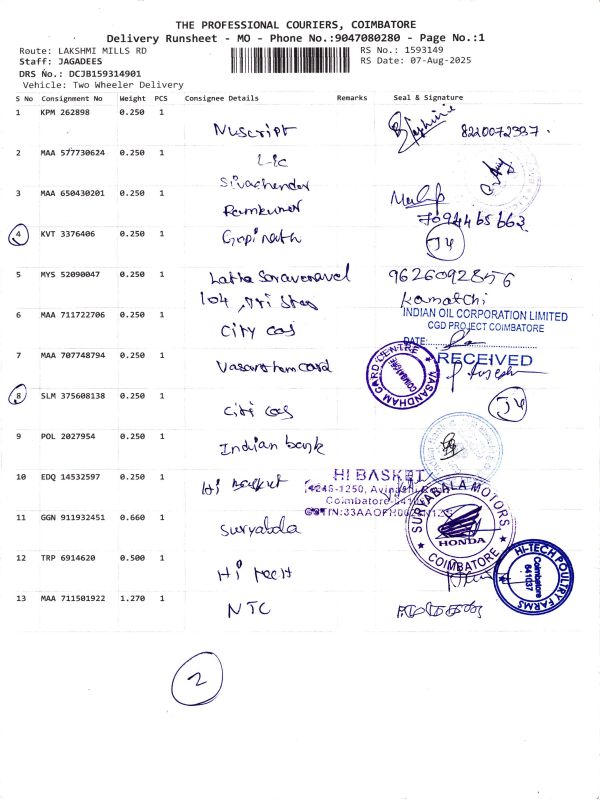 THE PROFESSIONAL COURIERS, COIMBATORE
Delivery Runsheet - MO - Phone No.:9047080280 - Page No.:1
Route: LAKSHMI MILLS RD
RS No.: 1593149
Staff: JAGADEES
RS Date: 07-Aug-2025
DRS No.: DCJB159314901
Vehicle: Two Wheeler Delivery
S No Consignment No Weight PCS Consignee Details Remarks Seal & Signature
1 KPM 262898 0.250 1
Nuscript 8220072337.
2 MAA 577730624 0.250 1
Lic
3 MAA 650430201 0.250 1
Sivachender
Ramkumar
7094465663
4 KVT 3376406 0.250 1
Gopinath J4
5 MYS 52090047 0.250 1
Latha Saravanavel 9626092856
104, Tri Star Kamatchi
6 MAA 711722706 0.250 1
City Gas
INDIAN OIL CORPORATION LIMITED
CGD PROJECT COIMBATORE
DATE:
RECEIVED
7 MAA 707748794 0.250 1
Vasantham card
VASANDHAM CARD CENTRE
COIMBATORE
8 SLM 375608138 0.250 1
Citi Gas J4
9 POL 2027954 0.250 1
Indian bank
10 EDQ 14532597 0.250 1
Hi Basket
HI BASKET
11 GGN 911932451 0.660 1
Suryabala
SURYABALA MOTORS
HONDA
COIMBATORE
12 TRP 6914620 0.500 1
Hi tech
HI-TECH POULTRY FARMS
Coimbatore
641037
13 MAA 711501922 1.270 1
NTC
2